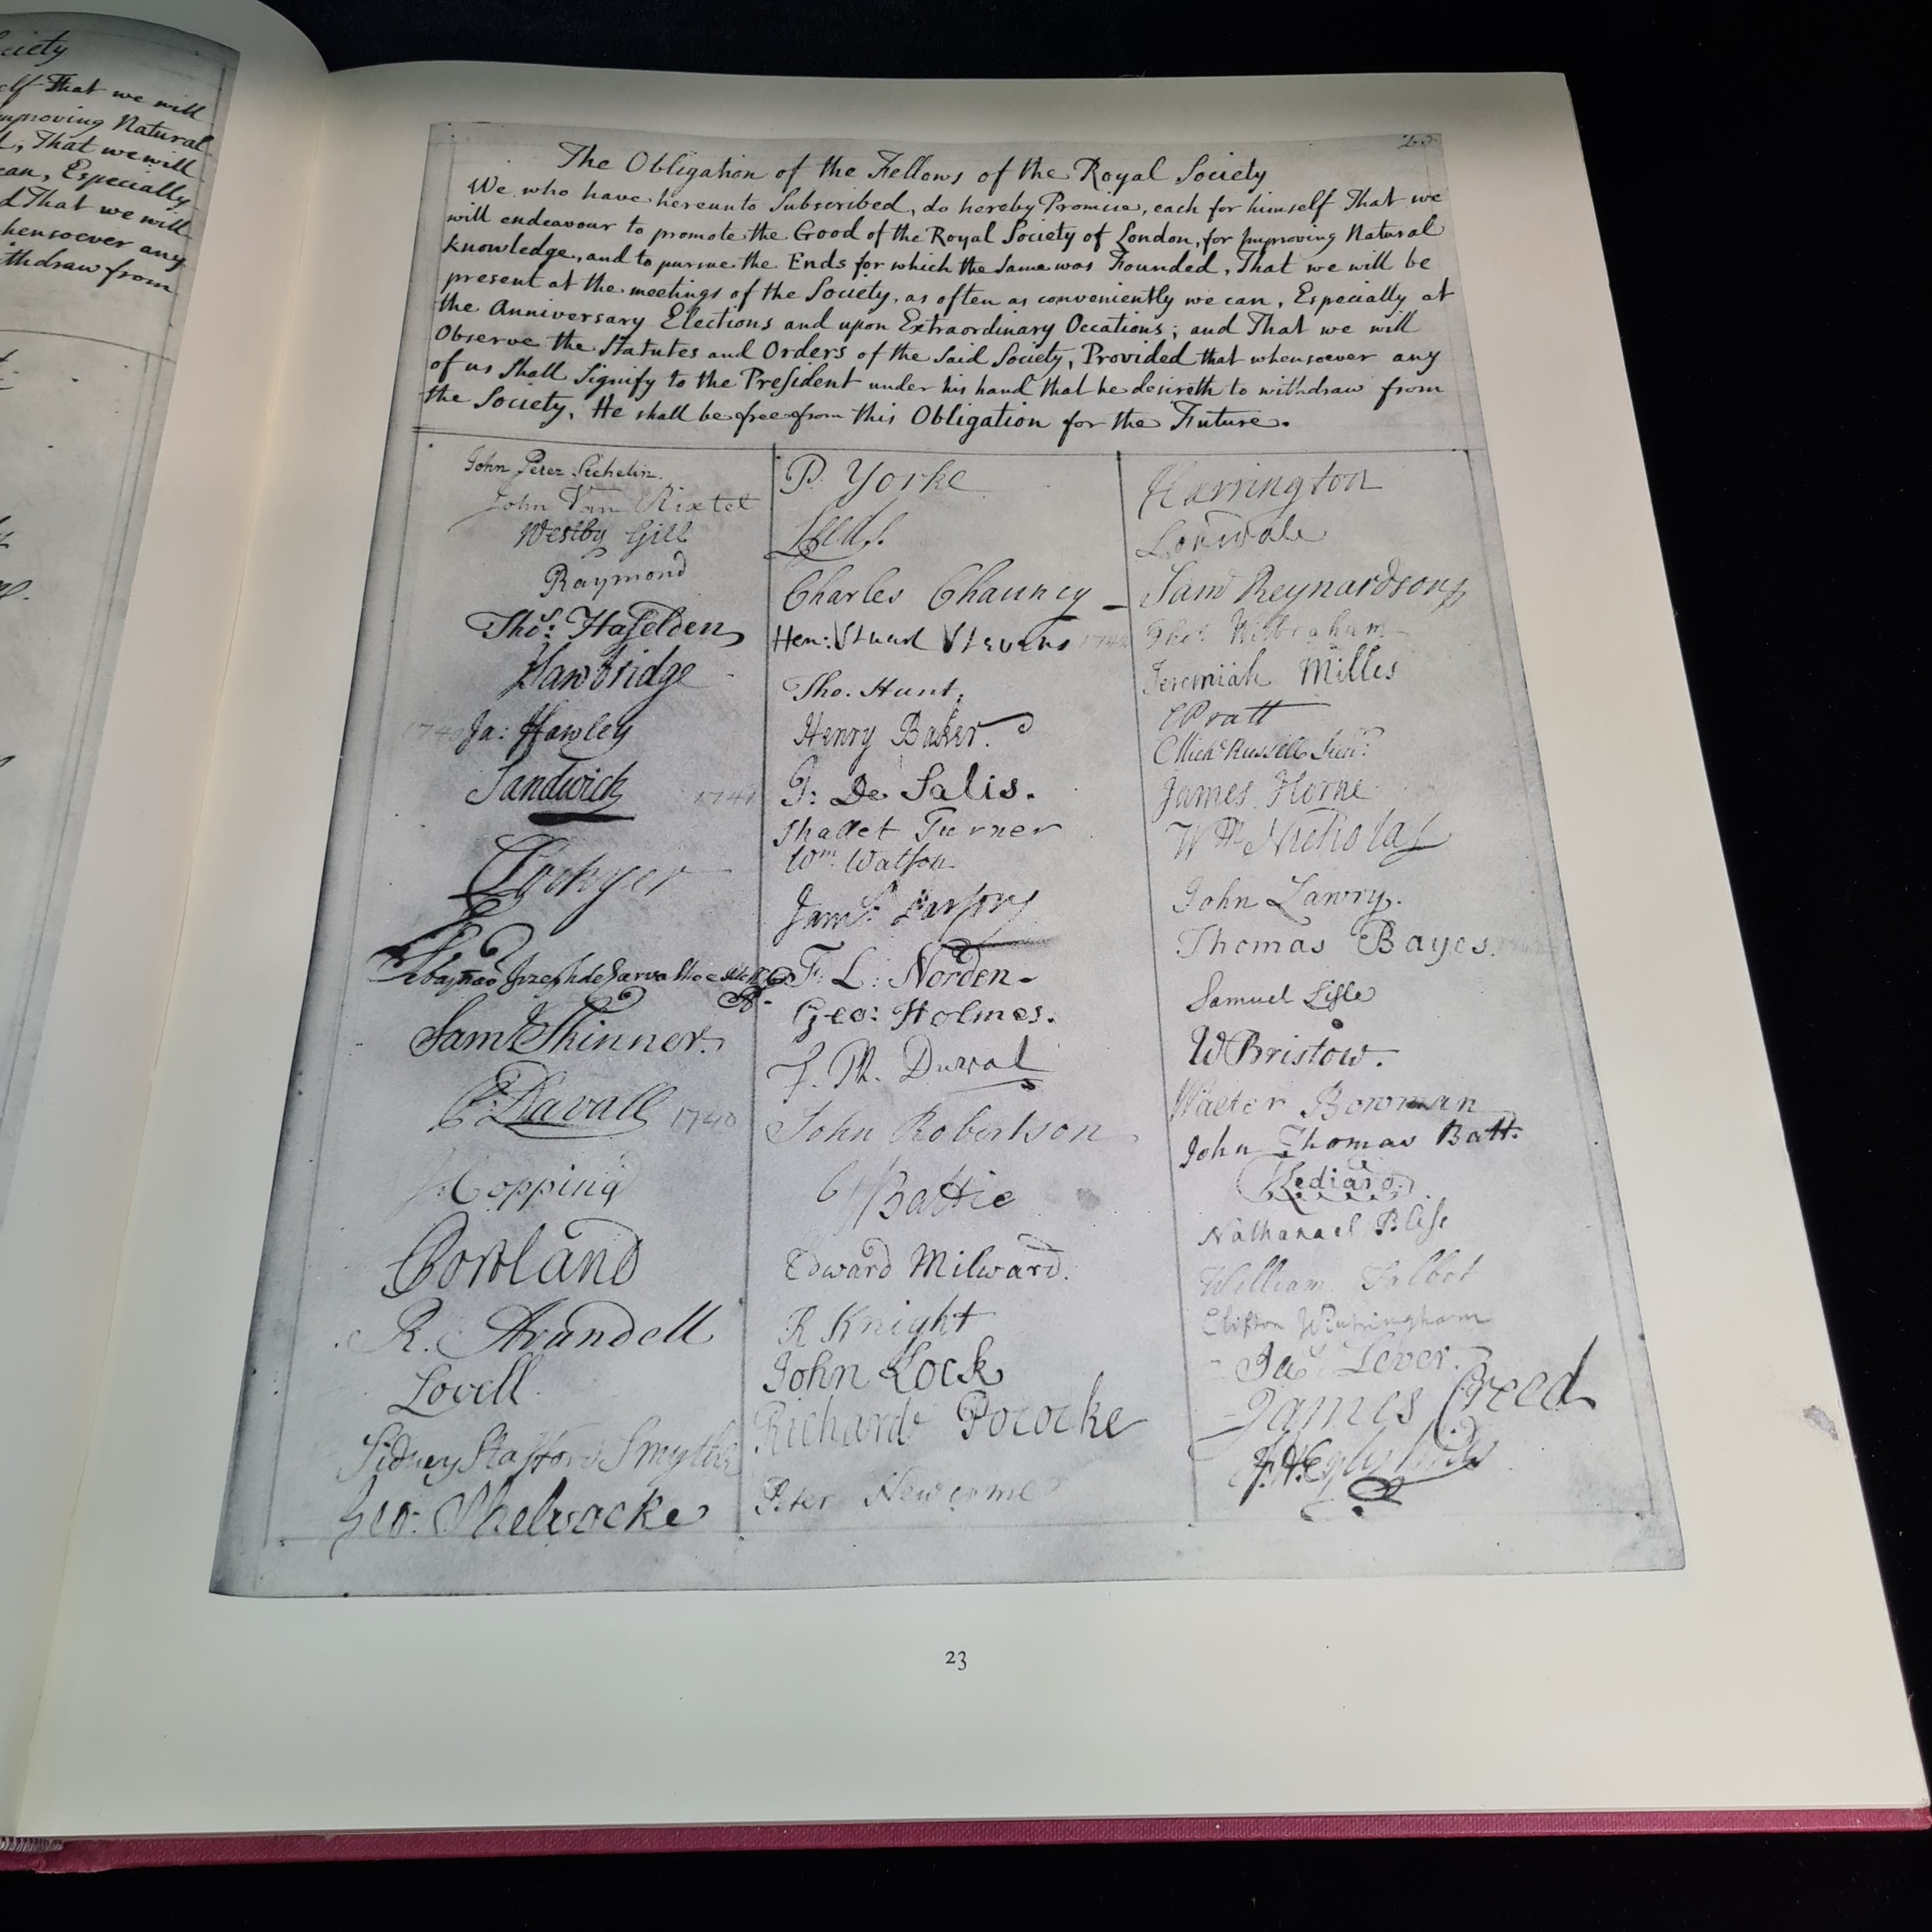 ciety
elf That we will
mproving Natural
That we will
can, Especially
d That we will
hensoever any
ithdraw from
The Obligation of the Fellows of the Royal Society
We who have hereunto Subscribed, do hereby Promise, each for himself That we
will endeavour to promote the Good of the Royal Society of London, for Improving Natural
Knowledge, and to pursue the Ends for which the same was Founded, That we will be
present at the meetings of the Society, as often as conveniently we can, Especially at
the Anniversary Elections and upon Extraordinary Occations; and That we will
Observe the Statutes and Orders of the Said Society, Provided that whensoever any
of us Shall Signify to the President under his hand that he desireth to withdraw from
the Society, He shall be free from this Obligation for the Future.
John Peter Stehelin.
John Van Rixtel
Westby Gill
Raymond
Thos: Haselden
Hawbridge
1740 Ja: Hawley
Sandwich 1741
Lockyer
Sam Skinner.
Davall 1740
J: Copping
Portland
R. Arundell
Lovell
Sidney Stafford Smythe
Geo: Shelvocke
P. Yorke
Leeds.
Charles Chauncy
Hen: Stuart Stevens
Tho. Hunt.
Henry Baker.
J: De Salis.
Shallet Turner
Wm. Watson
Jams. Parsons
F: L: Norden
Geo: Holmes.
P. M. Duval
John Robertson
Battie
Edward Milward.
R Knight
John Lock
Richard Pococke
Peter Newcome
Harrington
Lonsdale
Sam Reynardson
Thos. Wilbraham
Jeremiah Milles
C Pratt
Michl Russell Junr:
James Horne
Wm Nicholas
John Lawry.
Thomas Bayes.
Samuel Lisle
W Bristow.
Walter Bowman
John Thomas Batt.
Lediard.
Nathanael Bliss
William Talbot
Clifton Wintringham
Ja: Lever.
James Creed
23